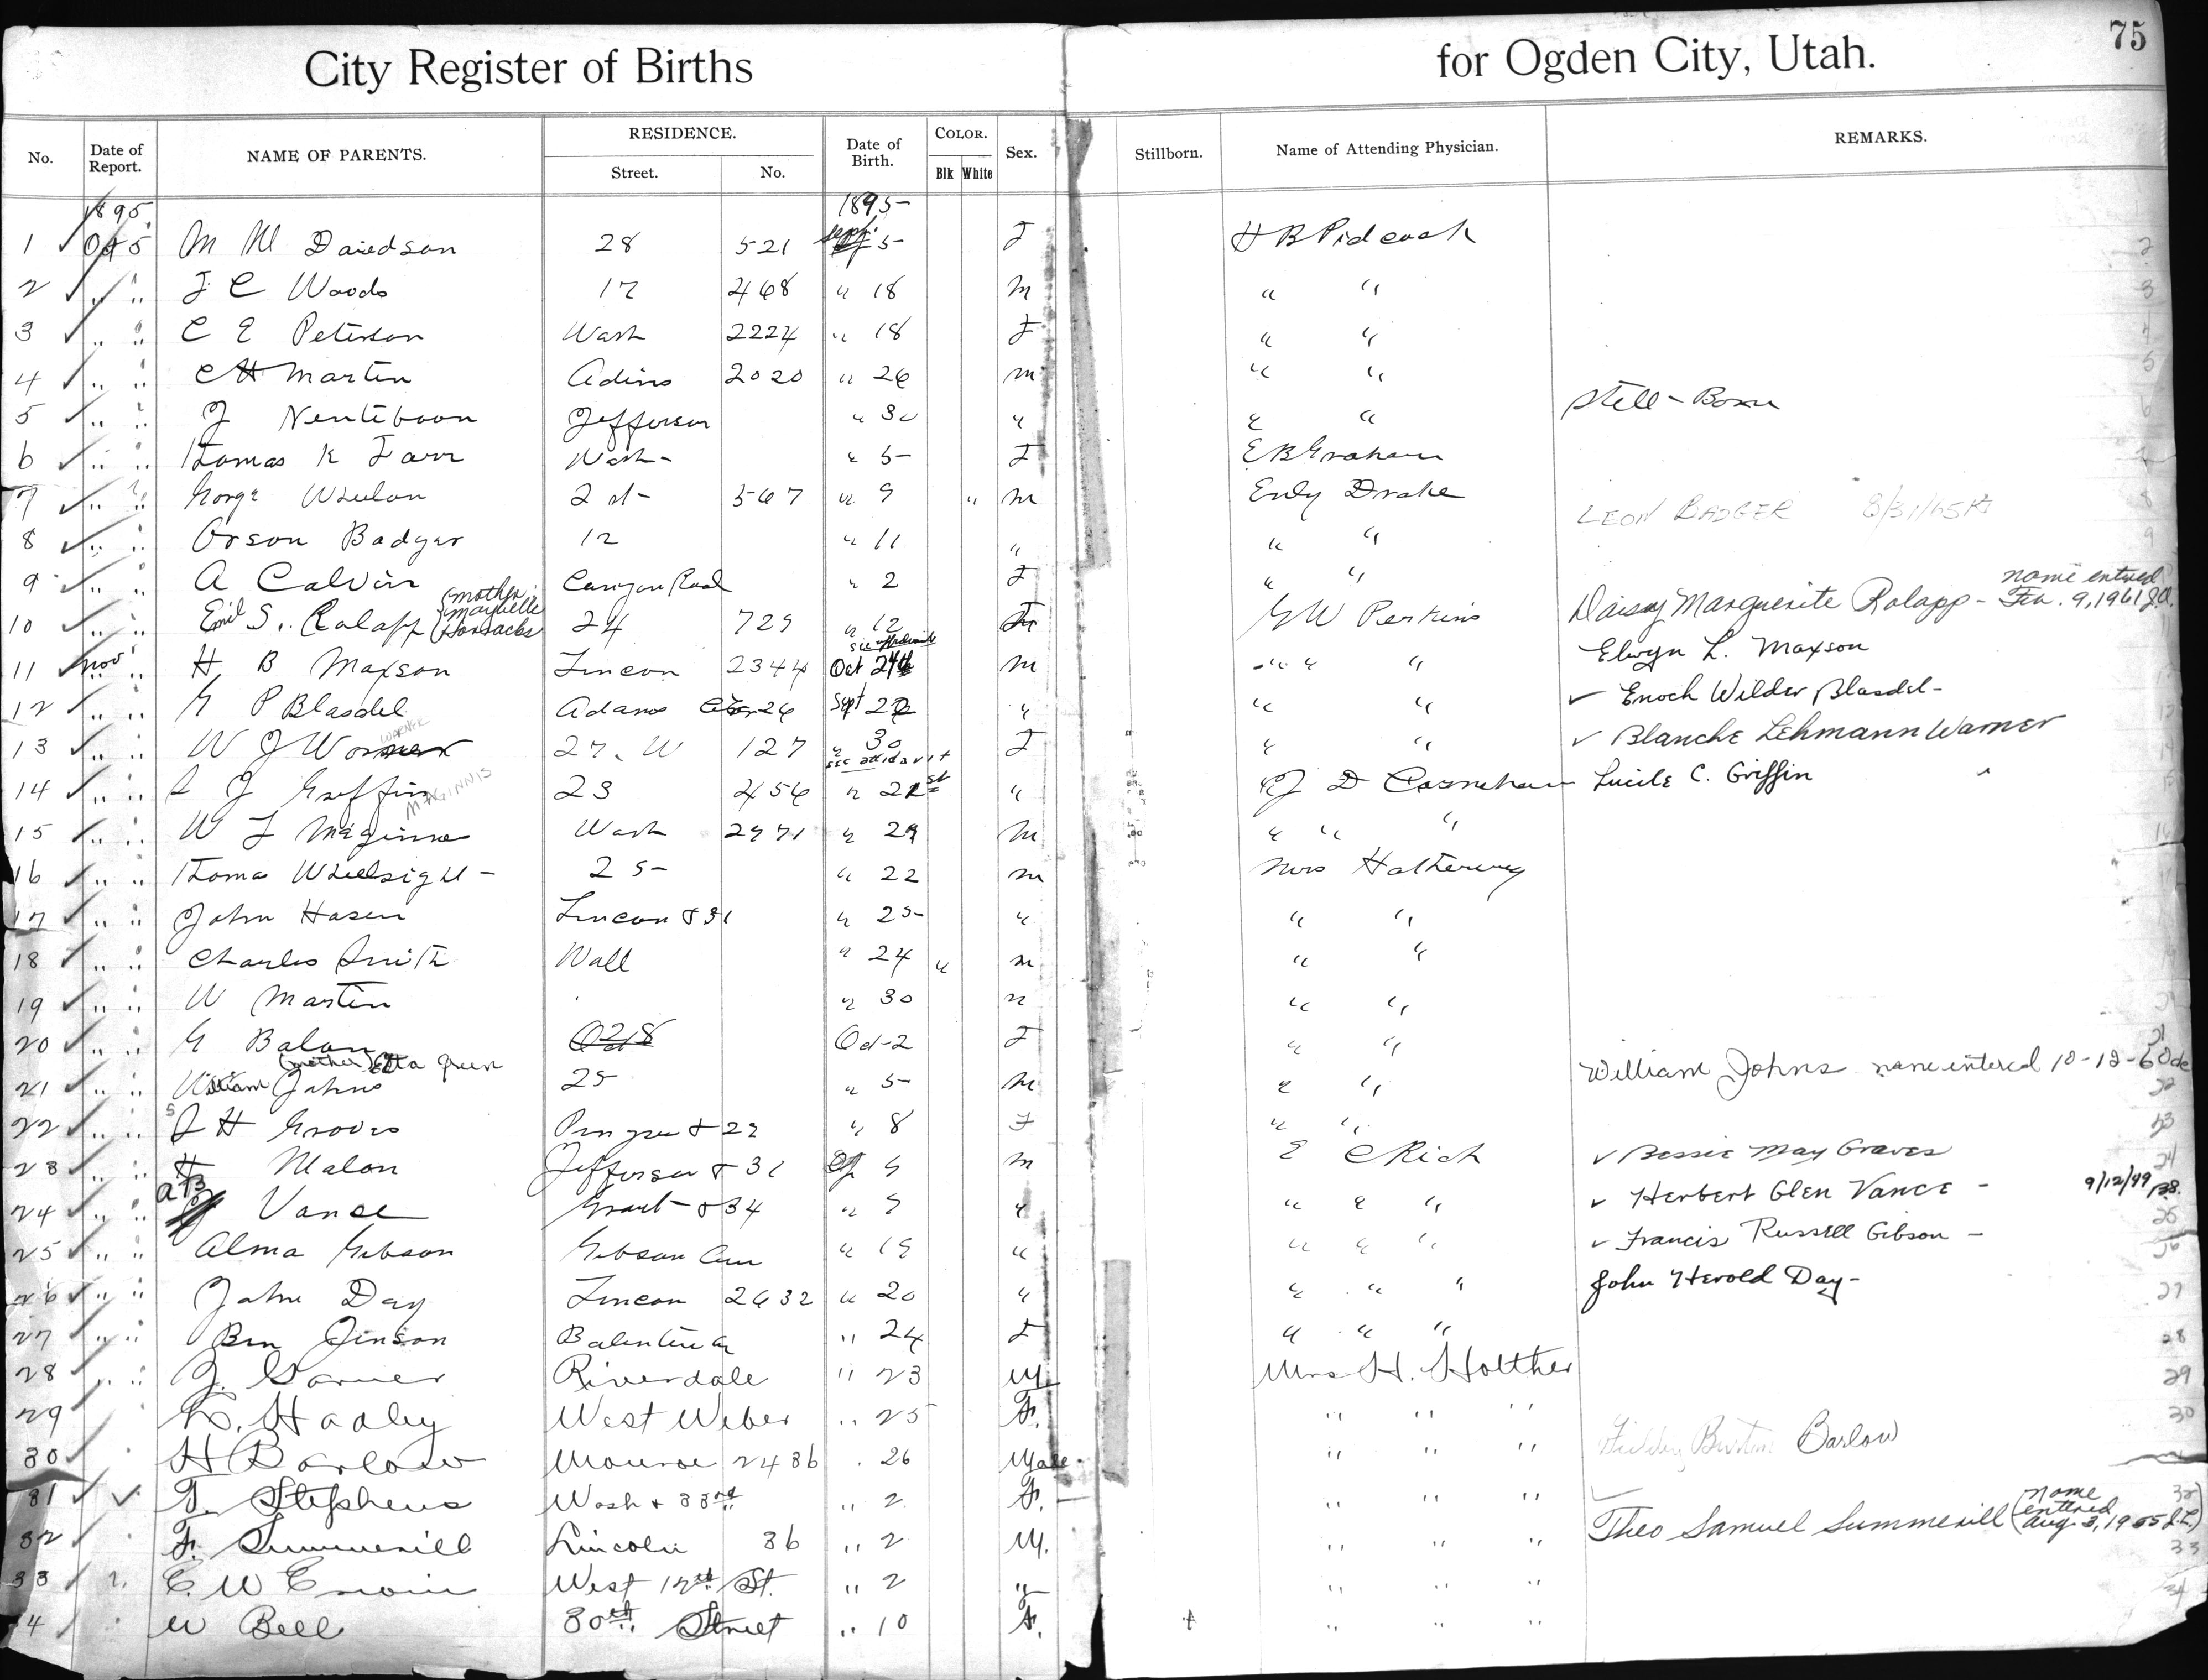 75
City Register of Births for Ogden City, Utah.
No. Date of Report. NAME OF PARENTS. RESIDENCE. Street. No. Date of Birth. COLOR. Blk White Sex. Stillborn. Name of Attending Physician. REMARKS.
1895 1895
1 Oct 5 M M Davidson 28 521 Sept 5 F H B Pidcock
2 " " J C Woods 17 468 " 18 M " "
3 " " C E Peterson Wash 2224 " 18 F " "
4 " " C H Martin Adms 2020 " 26 M " "
5 " " J Nenteboon Jefferson " 30 " " " Still-Born
6 " " Thomas K Farr Wash- " 5 F E B Graham
7 " " Gorge Wheelon 2d- 567 " 9 " M Drake
8 " " Orson Badger 12 " 11 " " " LEON BADGER 8/31/65
9 " " A Calvin Canyon Road " 2 F " "
10 " " Emil S. Rolapp (mother Maybelle Horrocks 24 729 " 12 F G W Perkins Daisy Marguerite Rolapp - name entered Feb. 9, 1961 J.A.
11 Nov H B Maxson Lincon 2344 Oct 24 see affidavit M " " " Elwyn L. Maxson
12 " " G P Blasdel Adams 26 Sept 22 " " " ✓ Enoch Wilder Blasdel-
13 " " W J WARNER 27. W 127 " 30 F " " ✓ Blanche Lehmann Warner
14 " " L J Griffin 23 456 see affidavit " 21st " J D Carnahan Lucile C. Griffin
15 " " W L Maginnes MAGINNIS Wash 2771 " 29 M " " "
16 " " Thomas Wheelright- 25- " 22 M Mrs Hatherway
17 " " John Hasen Lincon & 31 " 25- " " "
18 " " Charles Smith Wall " 24 " M " "
19 " " W Martin " 30 " " "
20 " " G Balan Oct 2 F " "
21 " " William Johns (mother) Etta Green 25 " 5- M " " William Johns name entered 10-12-60
22 " " J H Groves & 22 " 8 F " "
23 " " H Malan Jefferson & 31 9 M E C Rich ✓ Bessie May Graves
24 " " Vance Grant & 34 " 9 " " " " ✓ Herbert Glen Vance - 9/12/49
25 " " Alma Gibson Gibson " 19 " " " " ✓ Francis Russell Gibson -
26 " " John Day Lincon 2632 " 20 " " " " John Herold Day-
27 " " Ben Jinson " 24 F " " "
28 " " J. Garner Riverdale " 23 M. Mrs H. Holther
29 Hadley West Weber " 25 F. " " "
30 H Barlow Monroe 2436 . 26 Male " " " Barlow
31 T. Stephens Wash & 33rd " 2 F. " " "
32 F. Summerill Lincoln 36 " 2 M. " " " Theo Samuel Summerill (name entered Aug. 3, 1955 J.L.)
33 E. W Erwin West 12th St. " 2 " " " "
34 W Bell 30th Street " 10 F. + " " "